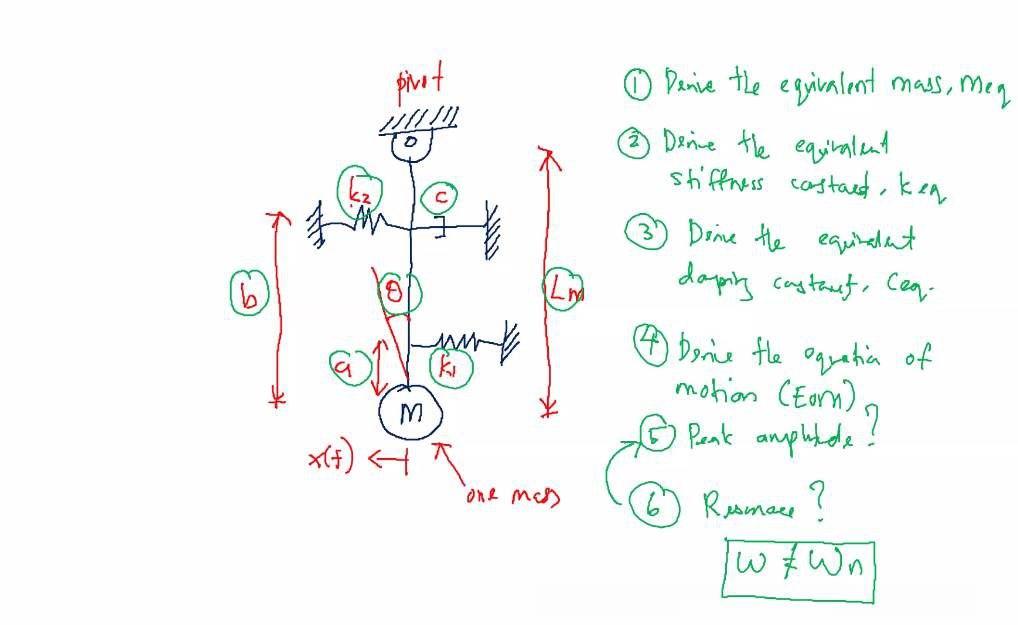 pivot
k2
c
b
θ
Lm
a
k1
M
x(t)
one mass
① Derive the equivalent mass, Meq
② Derive the equivalent
stiffness costant, keq
③ Derive the equivalent
damping costant, Ceq.
④ Derive the equation of
motion (EOM)
⑤ Peak amplitude?
⑥ Resonace?
ω ≠ ωn